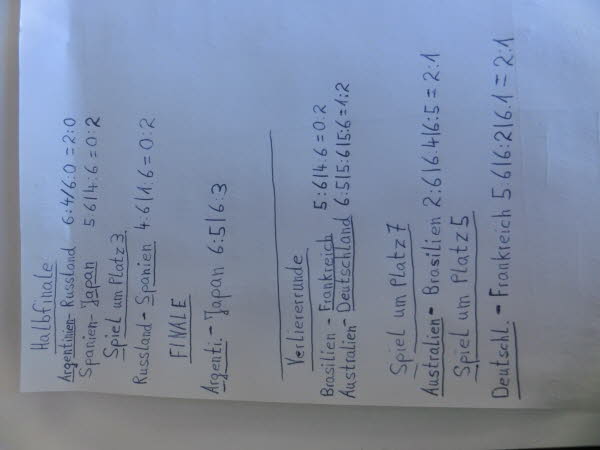 Halbfinale
Argentinien-Russland 6:4/6:0=2:0
Spanien-Japan 5:6|4:6=0:2
Spiel um Platz 3
Russland-Spanien 4:6|1:6=0:2
FINALE
Argenti.-Japan 6:5|6:3
Verliererrunde
Brasilien-Frankreich 5:6|4.6=0.2
Australien-Deutschland 6:5|5:6|5:6=1:2
Spiel um Platz 7
Australien-Brasilien 2:6|6.4|6:5=2:1
Spiel um Platz 5
Deutschl.-Frankreich 5.6|6:2|6.1=2:1